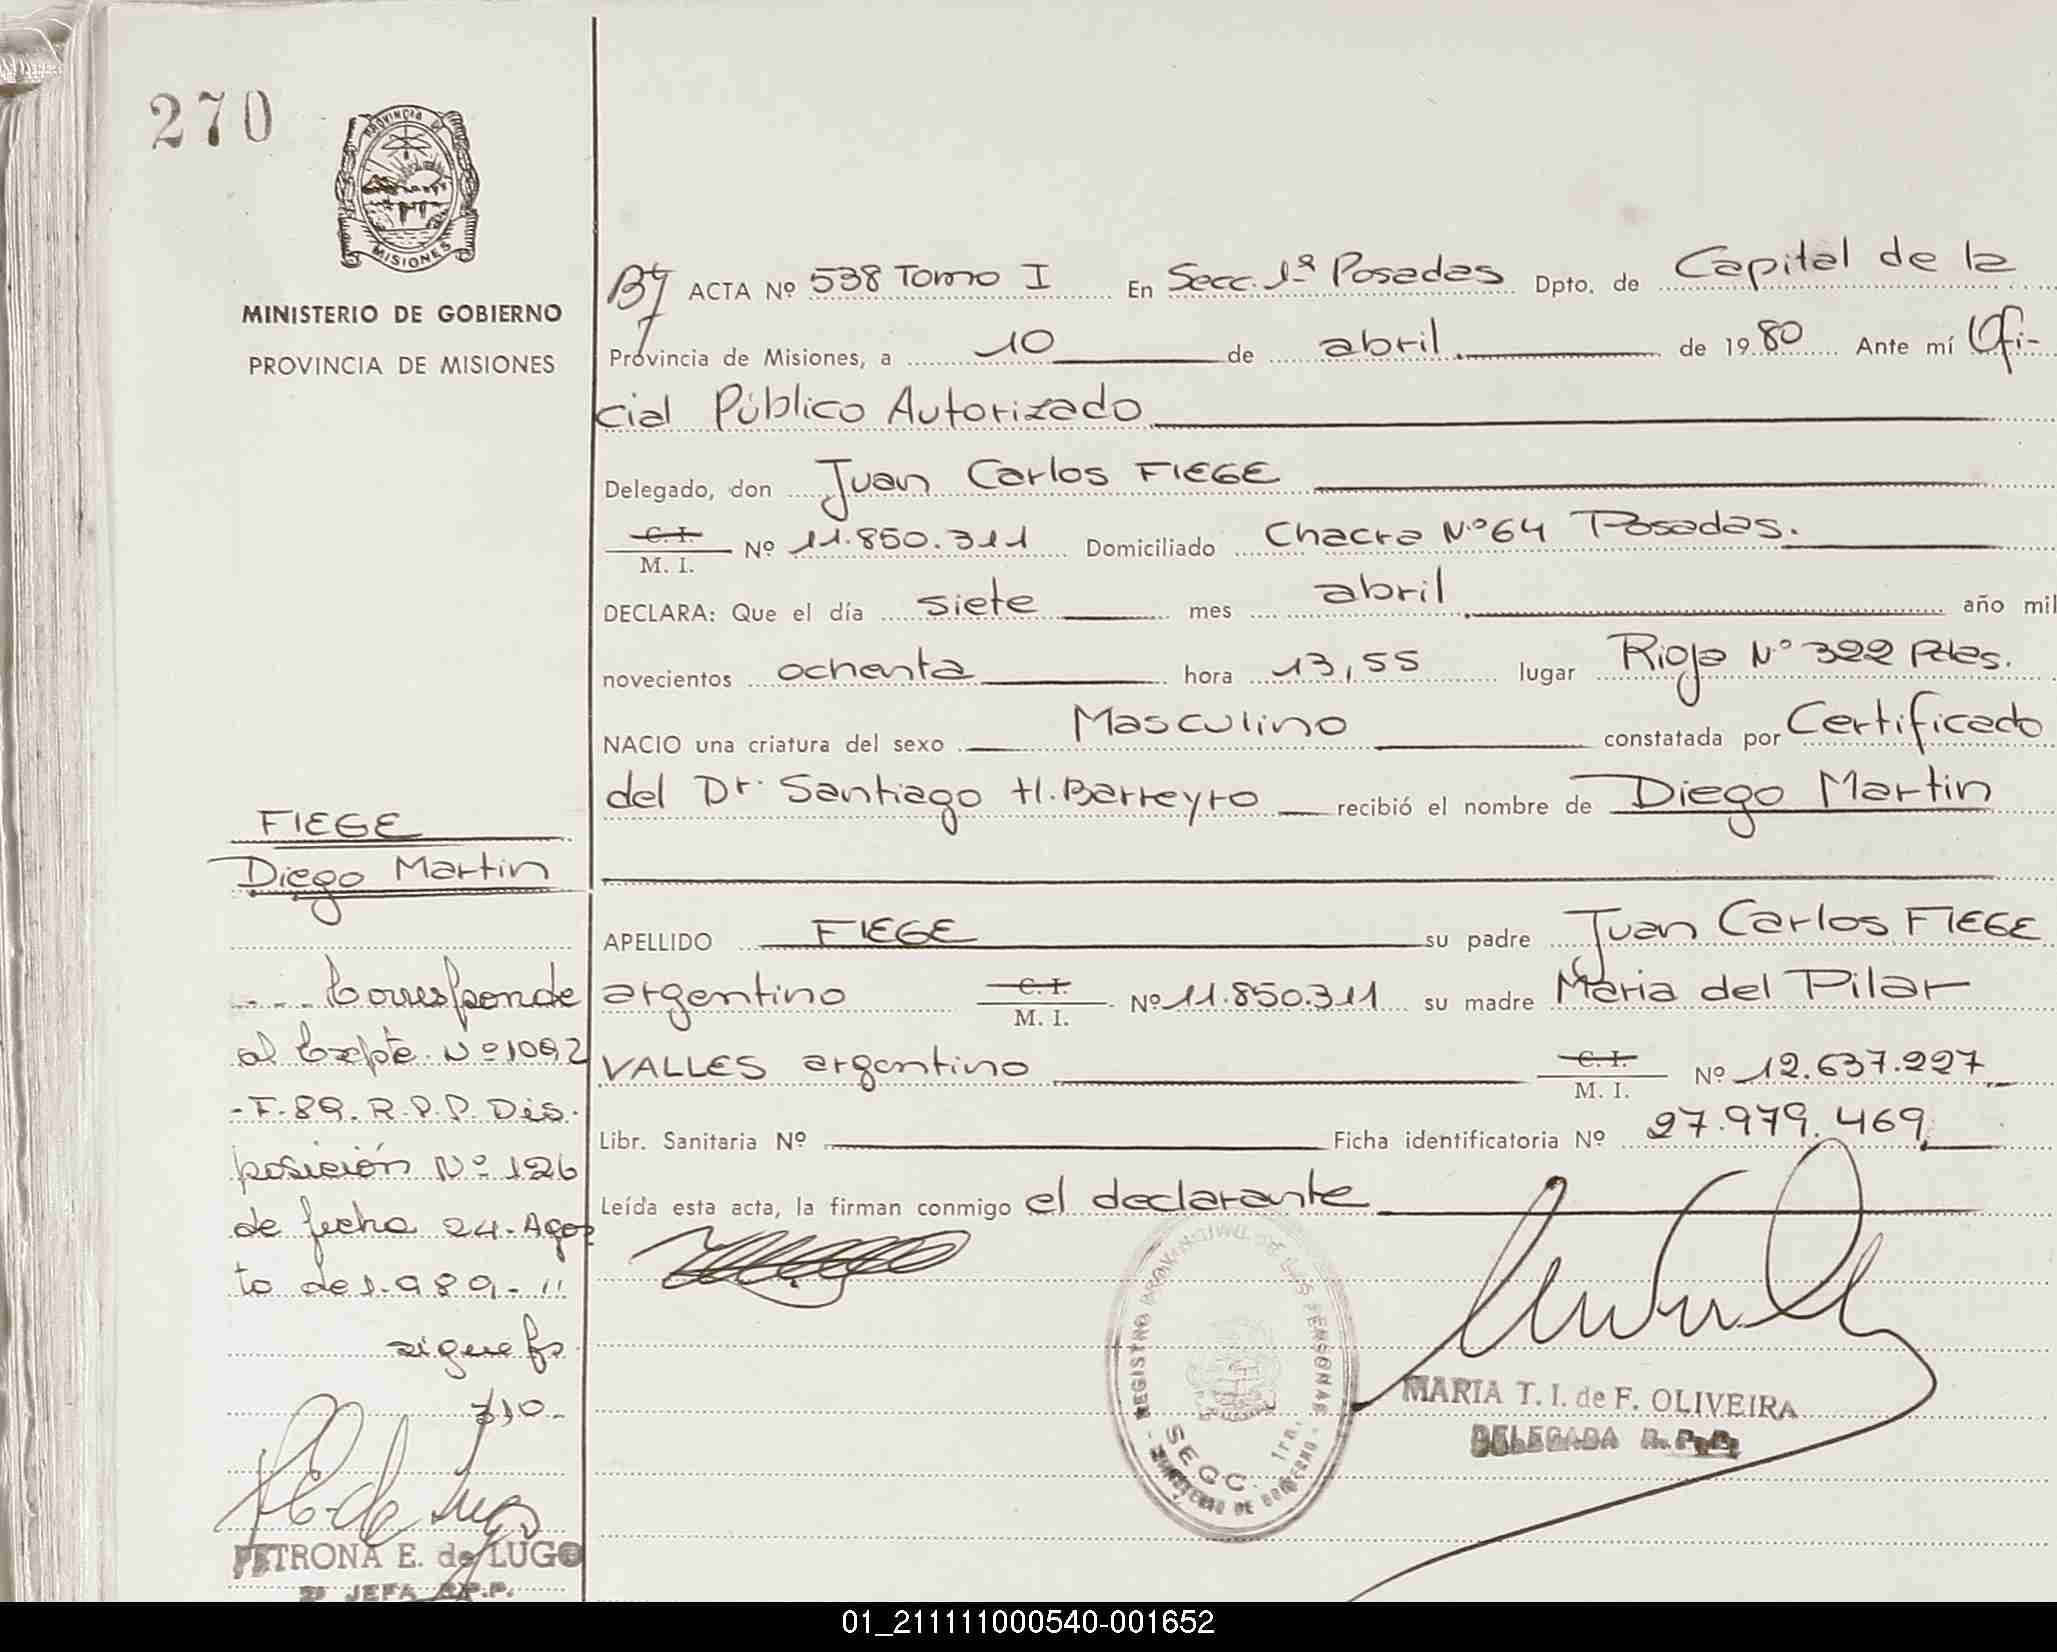 270
PROVINCIA DE
MISIONES
MINISTERIO DE GOBIERNO
PROVINCIA DE MISIONES
ACTA Nº 538 Tomo I En Secc. 1ª Posadas Dpto. de Capital de la
Provincia de Misiones, a 10 de abril de 1980 Ante mí Ofi-
cial Público Autorizado
Delegado, don Juan Carlos FIEGE
C. I.
M. I. Nº 11.850.311 Domiciliado Chacra Nº 64 Posadas.
DECLARA: Que el día siete mes abril año mil
novecientos ochenta hora 13,55 lugar Rioja Nº 322 Pdas.
NACIO una criatura del sexo Masculino constatada por Certificado
del Dr. Santiago H. Barreyro recibió el nombre de Diego Martin
APELLIDO FIEGE su padre Juan Carlos FIEGE
argentino C. I.
M. I. Nº 11.850.311 su madre Maria del Pilar
VALLES argentino C. I.
M. I. Nº 12.637.227
Libr. Sanitaria Nº Ficha identificatoria Nº 27.979.469
Leída esta acta, la firman conmigo el declarante
FIEGE
Diego Martin
Corresponde
al Expte. Nº 1092
-F-89. R.P.P. Dis-
posición Nº 126
de fecha 24-Agos
to de 1.989-"
sigue fs
310-
PETRONA E. de LUGO
2ª JEFA R.P.P.
REGISTRO PROVINCIAL DE LAS PERSONAS
SECC. 1ra.
MINISTERIO DE GOBIERNO
MARIA T. I. de F. OLIVEIRA
DELEGADA R. P. P.
01_211111000540-001652